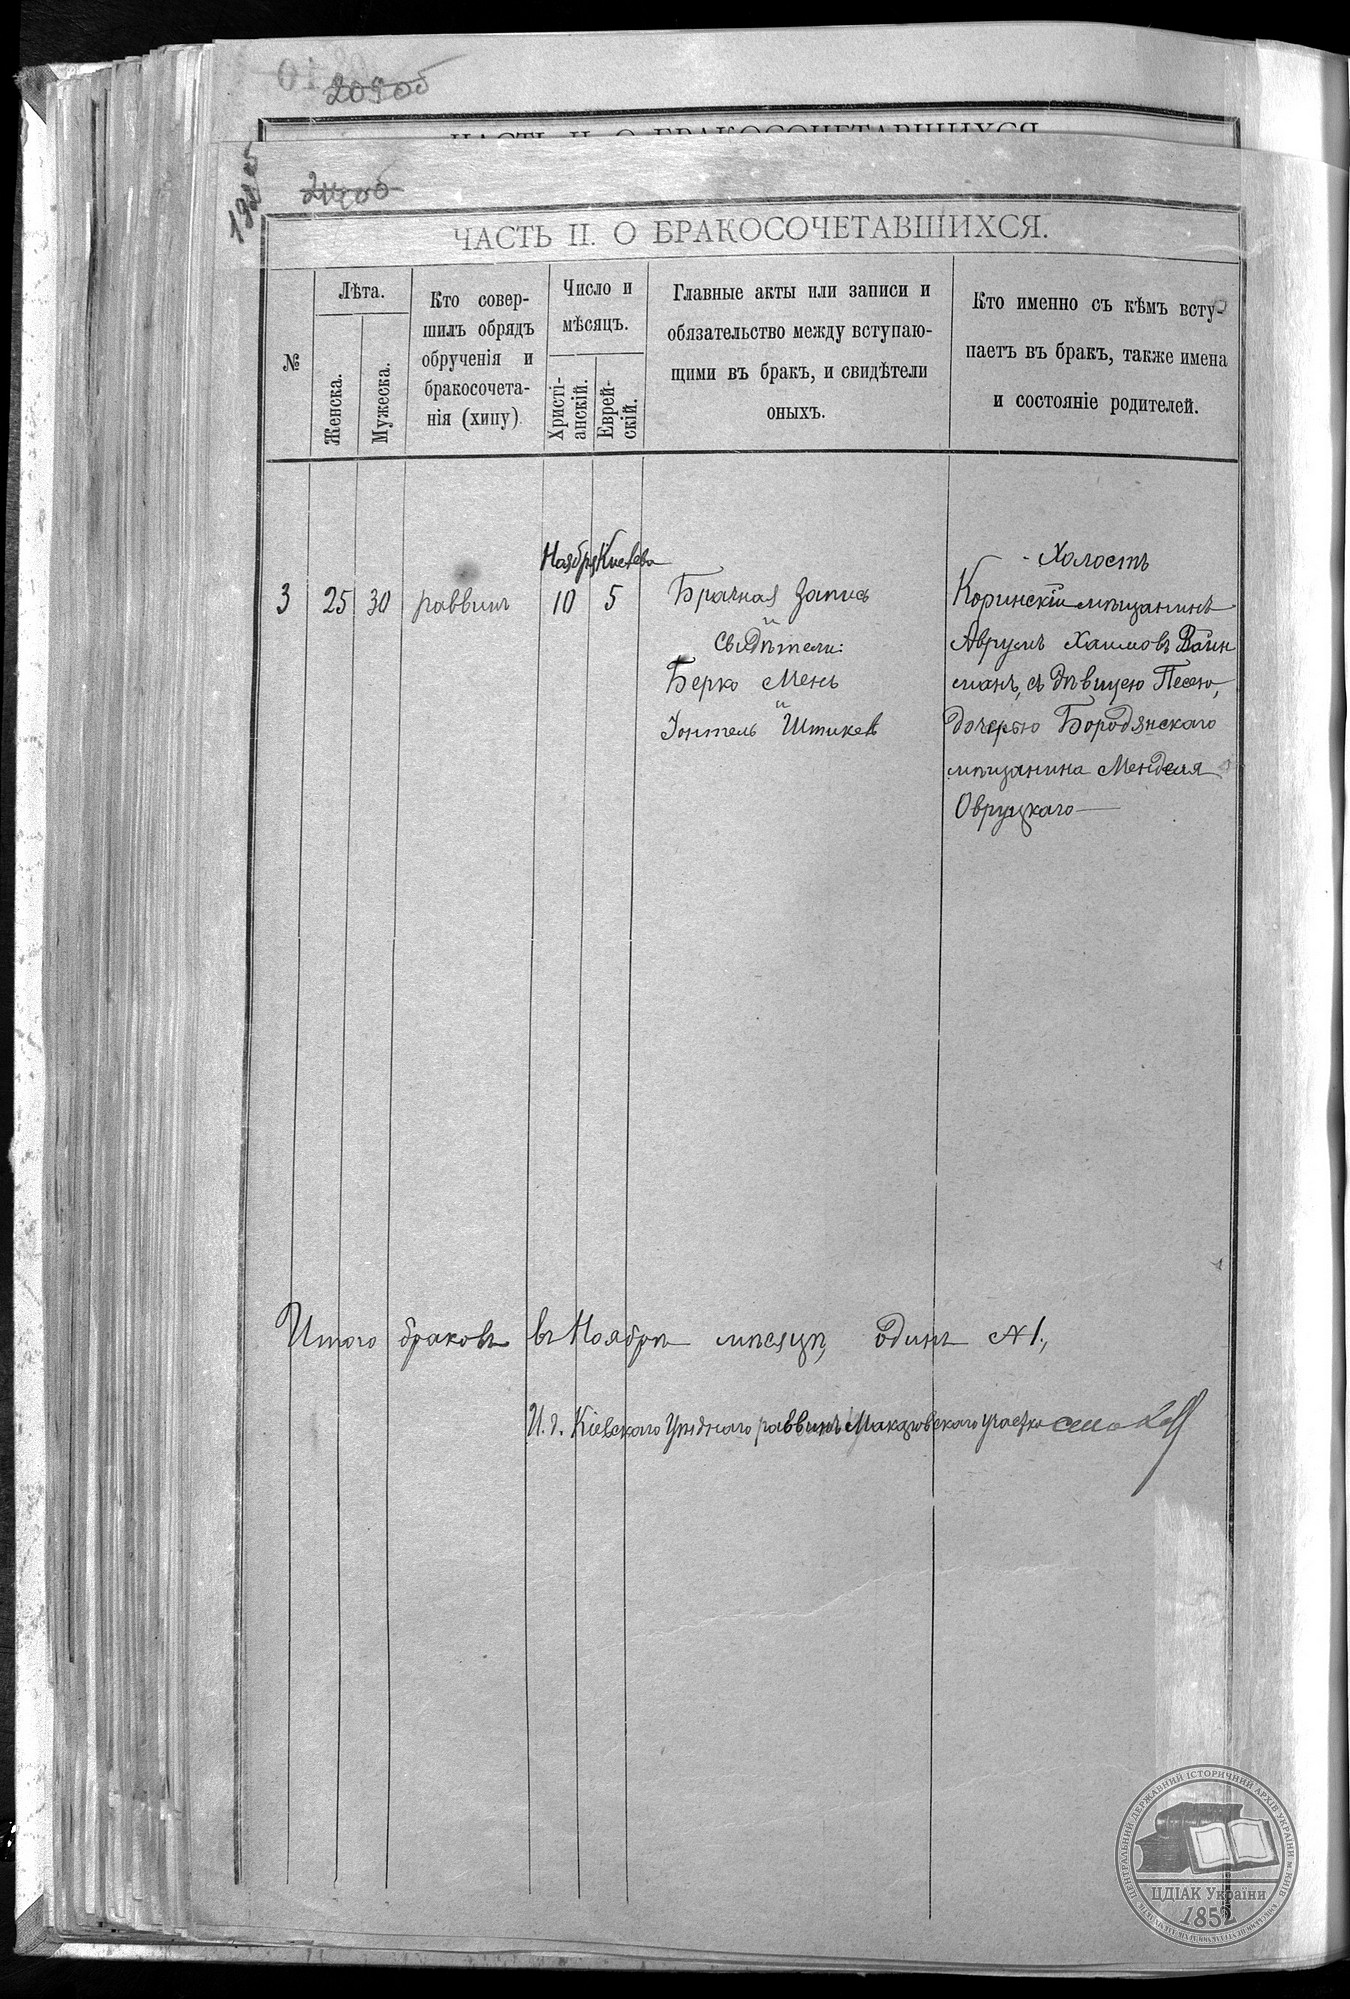 209об
ЧАСТЬ II. О БРАКОСОЧЕТАВШИХСЯ
ЧАСТЬ II. О БРАКОСОЧЕТАВШИХСЯ.
№
Лѣта.
Женска.
Мужеска.
Кто совер-
шилъ обрядъ
обрученія и
бракосочета-
нія (хипу)
Число и
мѣсяцъ.
Христі-
анскій.
Еврей-
скій.
Главные акты или записи и
обязательство между вступаю-
щими въ бракъ, и свидѣтели
оныхъ.
Кто именно съ кѣмъ всту-
паетъ въ бракъ, также имена
и состояніе родителей.
3
25
30
раввинъ
Ноября
10
Кислева
5
Брачная запись
и
свидѣтели:
Берко Мень
и
Іонтель Штикев
Холостъ
Коринскій мѣщанинъ
Аврумъ Хаимовъ Вайн
манъ, съ дѣвицею Песею,
дочерью Бородянскаго
мѣщанина Менделя
Овруцкаго
Итого браковъ въ Ноябрѣ мѣсяцѣ, одинъ №1,
И. д. Кіевскаго Уѣзднаго раввинъ Макаровскаго участка
ЦЕНТРАЛЬНИЙ ДЕРЖАВНИЙ ІСТОРИЧНИЙ АРХІВ УКРАЇНИ м. КИЇВ
ЦДІАК України
1852